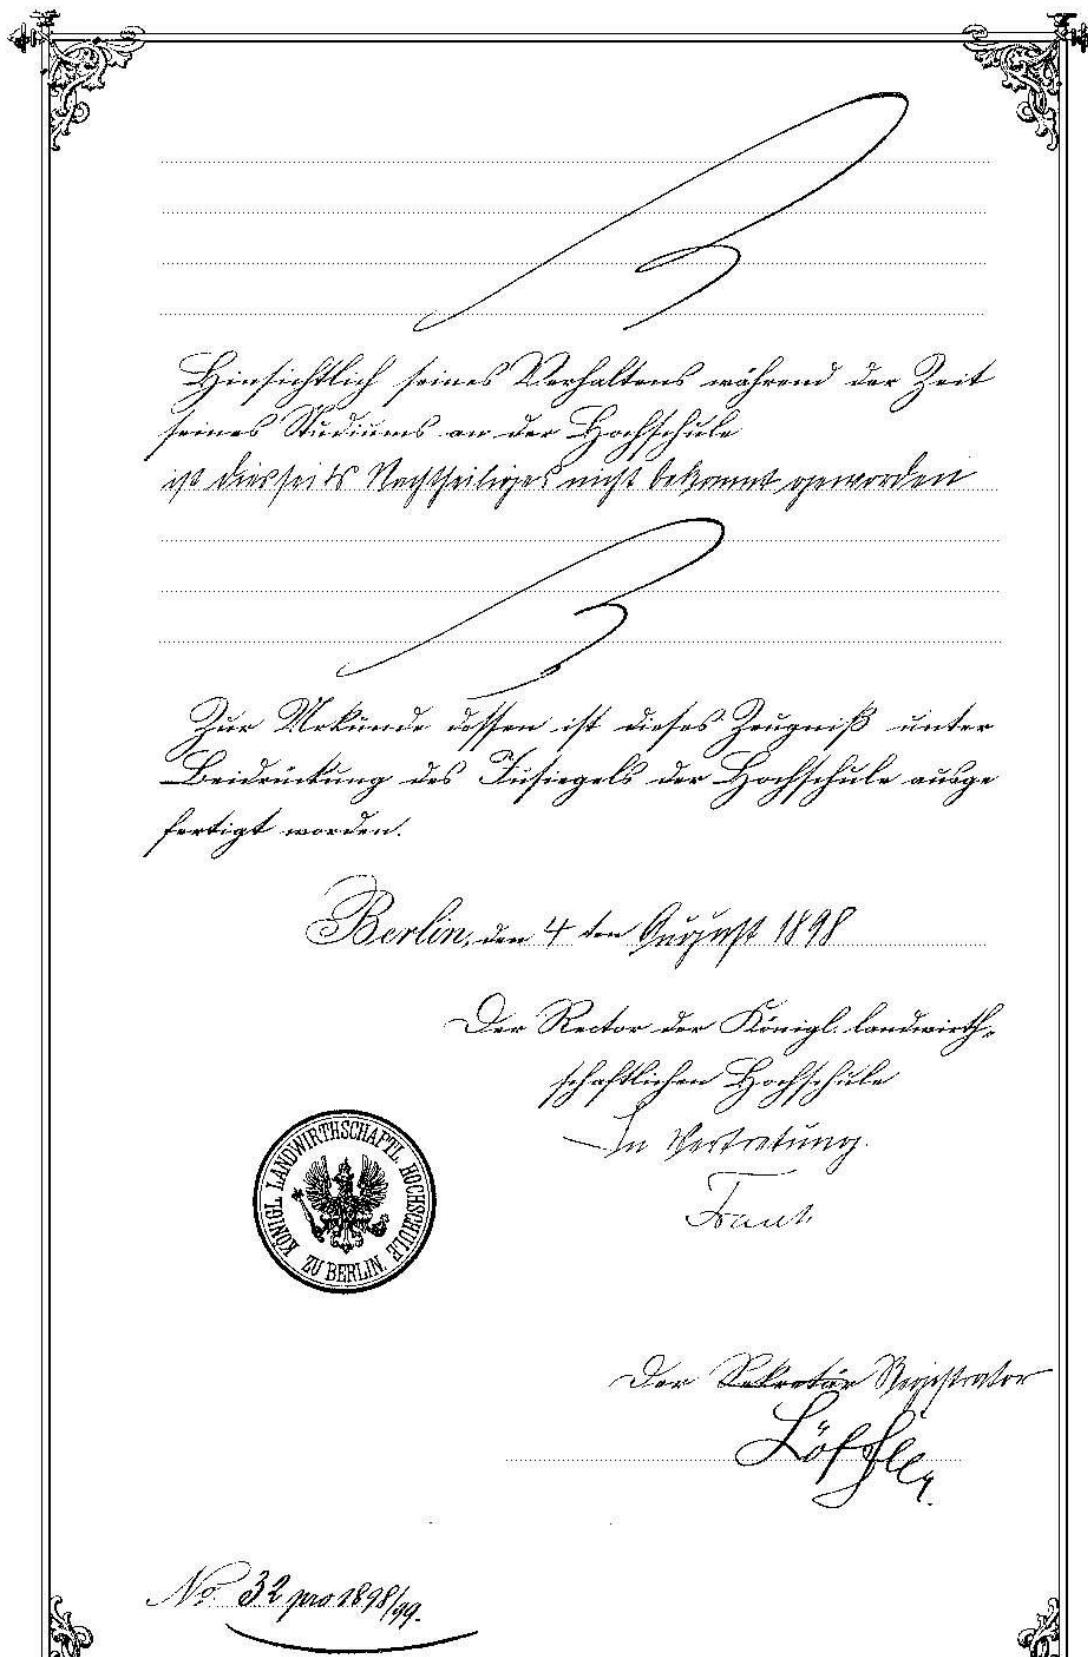 Hinsichtlich seines Verhaltens während der Zeit
seines Studiums an der Hochschule
ist diesseits Nachtheiliges nicht bekannt geworden
Zur Urkunde dessen ist dieses Zeugniß unter
Beidrückung des Insiegels der Hochschule ausge
fertigt worden.
Berlin, den 4 ten August 1898
Der Rector der Königl. landwirth-
schaftlichen Hochschule
In Vertretung.
KÖNIGL. LANDWIRTHSCHAFTL. HOCHSCHULE
ZU BERLIN.
Der Sekretär Registrator
Löffler.
No. 32 pro 1898/99.